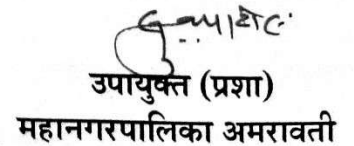 उपायुक्त (प्रशा)
महानगरपालिका अमरावती